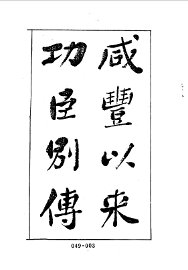 咸豐以来
功臣別傳
049-003